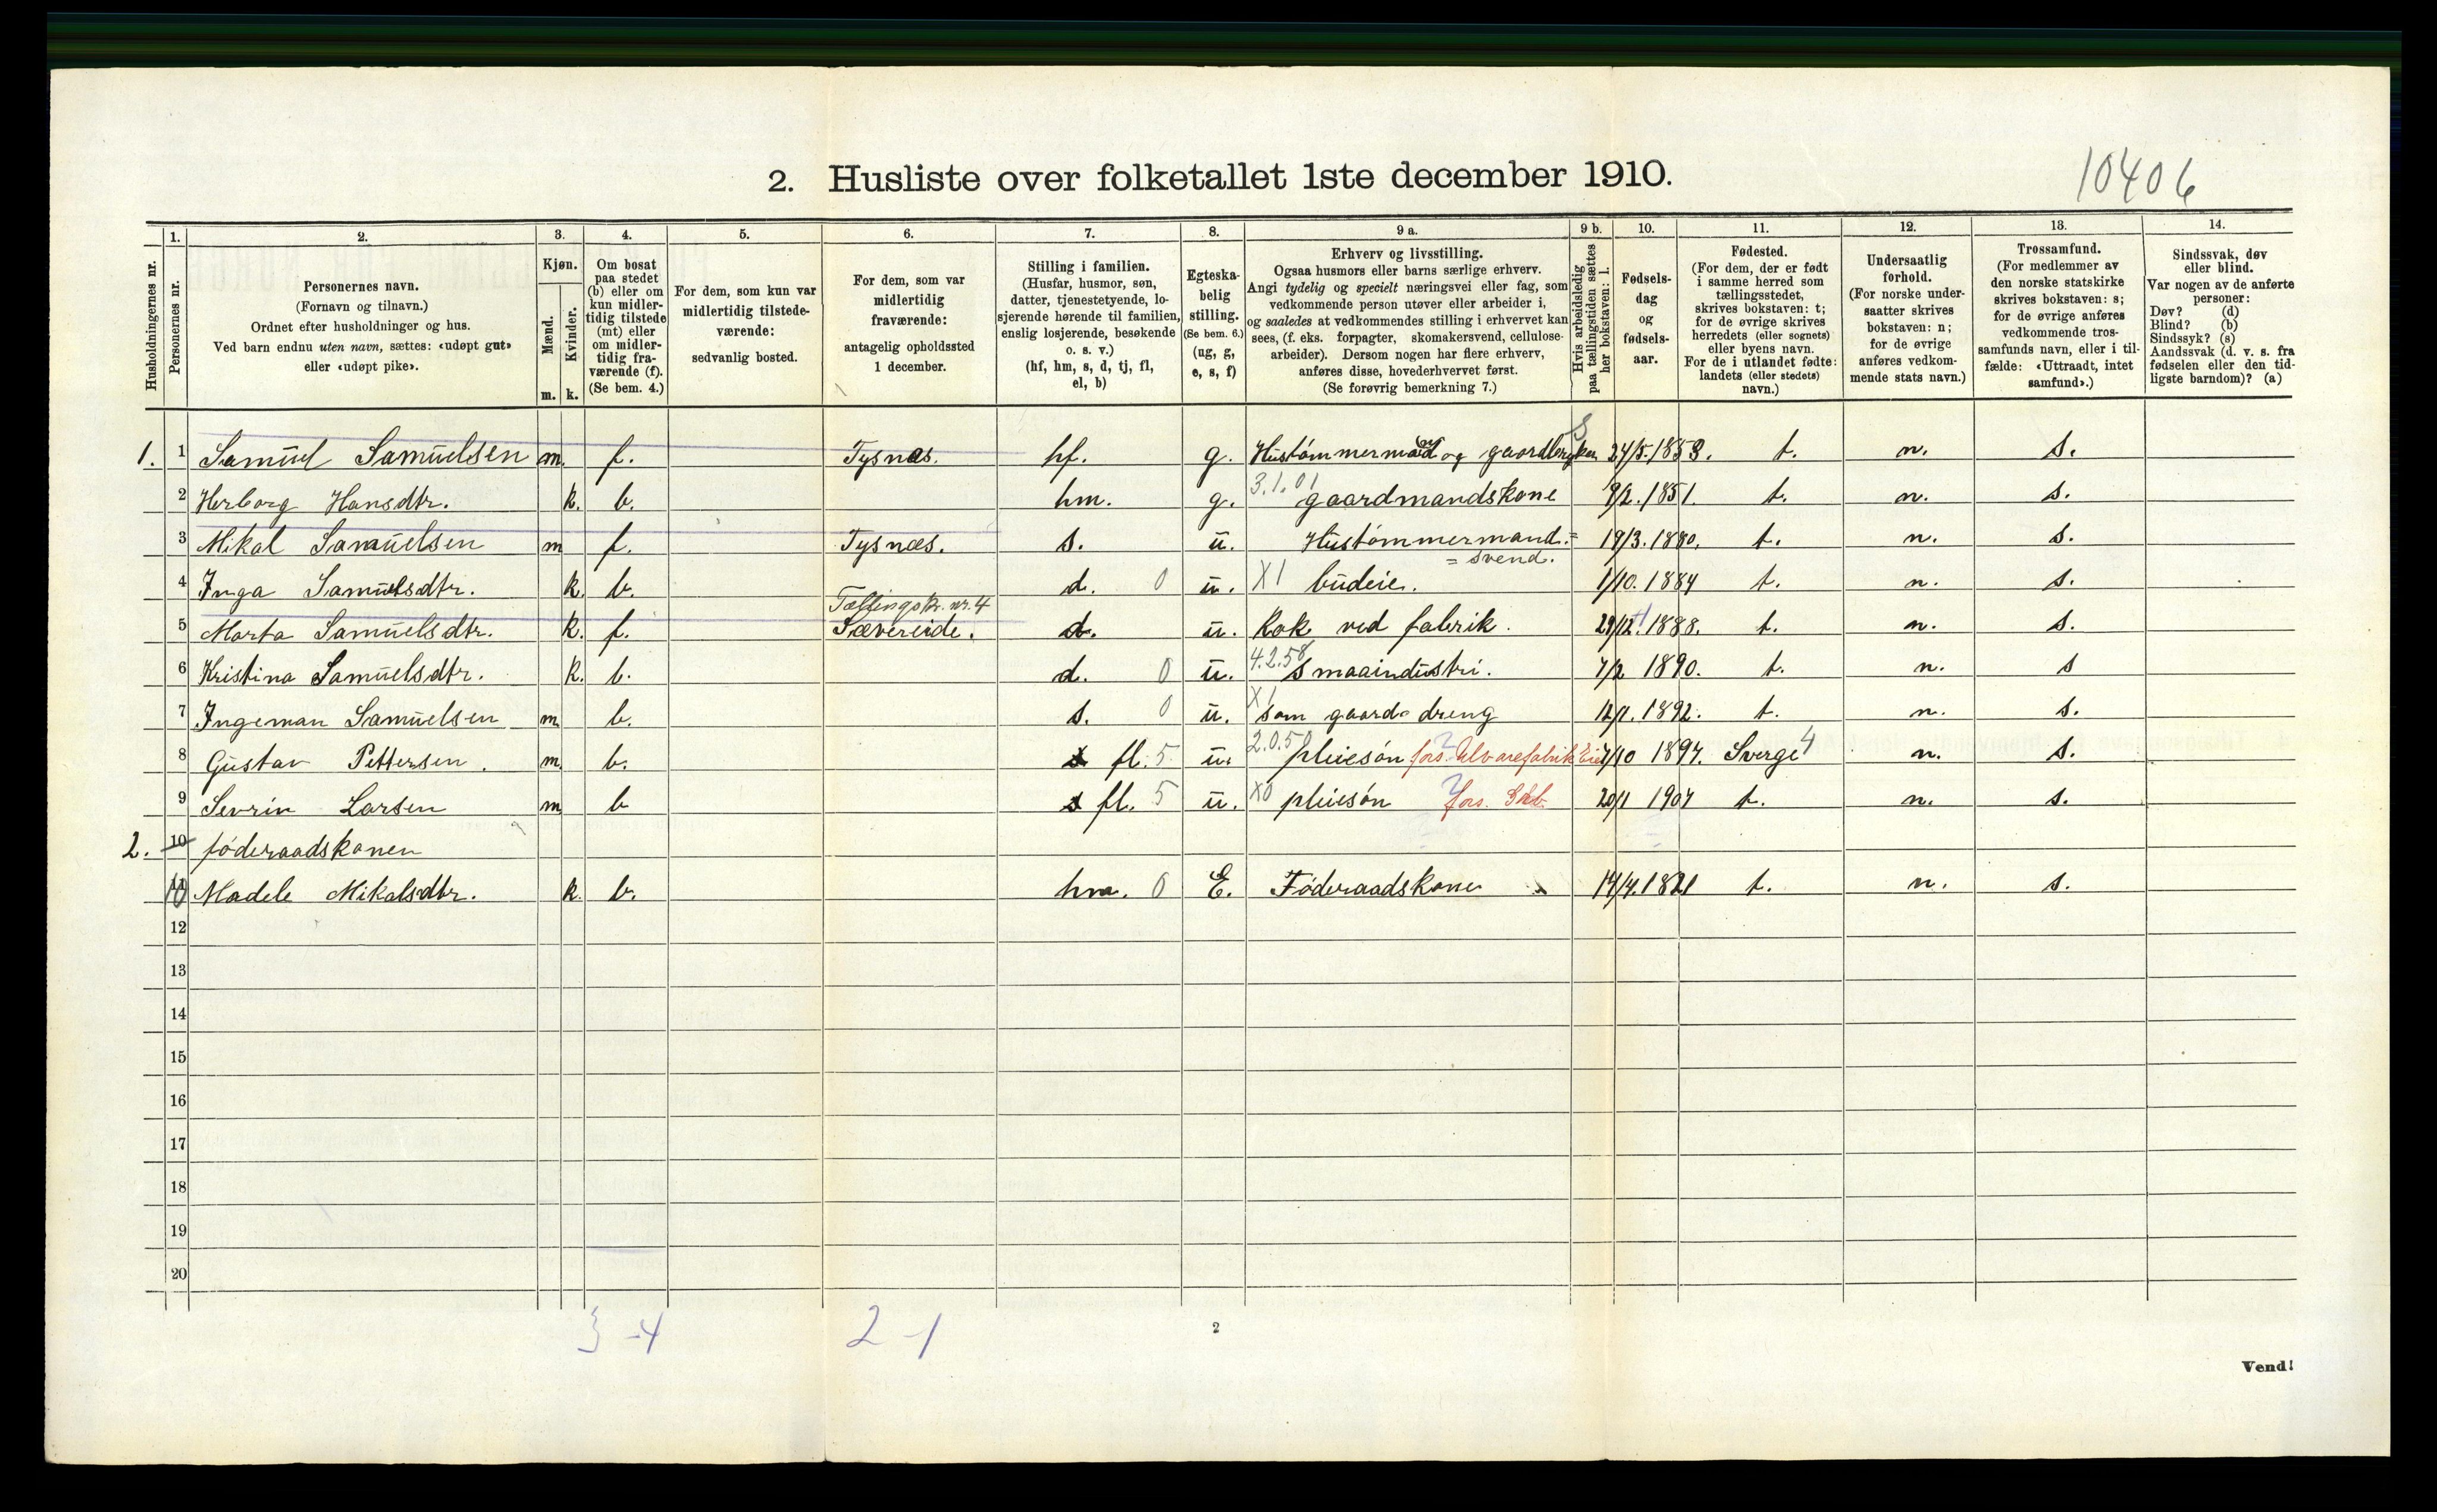 10406
2. Husliste over folketallet 1ste december 1910.
Husholdningernes nr.
1.
Personernes nr.
2.
Personernes navn.
(Fornavn og tilnavn.)
Ordnet efter husholdninger og hus.
Ved barn endnu uten navn, sættes: «udøpt gut»
eller «udøpt pike».
3.
Kjøn.
Mænd.
Kvinder.
m. k.
4.
Om bosat
paa stedet
(b) eller om
kun midler-
tidig tilstede
(mt) eller
om midler-
tidig fra-
værende (f).
(Se bem. 4.)
5.
For dem, som kun var
midlertidig tilstede-
værende:
sedvanlig bosted.
6.
For dem, som var
midlertidig
fraværende:
antagelig opholdssted
1 december.
7.
Stilling i familien.
(Husfar, husmor, søn,
datter, tjenestetyende, lo-
sjerende hørende til familien,
enslig losjerende, besøkende
o. s. v.)
(hf, hm, s, d, tj, fl,
el, b)
8.
Egteska-
belig
stilling.
(Se bem. 6.)
(ug, g,
e, s, f)
9 a.
Erhverv og livsstilling.
Ogsaa husmors eller barns særlige erhverv.
Angi tydelig og specielt næringsvei eller fag, som
vedkommende person utøver eller arbeider i,
og saaledes at vedkommendes stilling i erhvervet kan
sees, (f. eks. forpagter, skomakersvend, cellulose-
arbeider). Dersom nogen har flere erhverv,
anføres disse, hovederhvervet først.
(Se forøvrig bemerkning 7.)
9 b.
Hvis arbeidsledig
paa tællingstiden sættes
her bokstaven: l.
10.
Fødsels-
dag
og
fødsels-
aar.
11.
Fødested.
(For dem, der er født
i samme herred som
tællingsstedet,
skrives bokstaven: t;
for de øvrige skrives
herredets (eller sognets)
eller byens navn.
For de i utlandet fødte:
landets (eller stedets)
navn.)
12.
Undersaatlig
forhold.
(For norske under-
saatter skrives
bokstaven: n;
for de øvrige
anføres vedkom-
mende stats navn.)
13.
Trossamfund.
(For medlemmer av
den norske statskirke
skrives bokstaven: s;
for de øvrige anføres
vedkommende tros-
samfunds navn, eller i til-
fælde: «Uttraadt, intet
samfund».)
14.
Sindssvak, døv
eller blind.
Var nogen av de anførte
personer:
Døv? (d)
Blind? (b)
Sindssyk? (s)
Aandssvak (d. v. s. fra
fødselen eller den tid-
ligste barndom)? (a)
1. 1 Samuel Samuelsen m. f. Tysnæs. hf. g. Hustömmermand og gaardbruker 24/5. 1858. t. n. s.
3.1.01
2 Herborg Hansdtr. k. b. hm. g. gaardmandskone 9/2. 1851. t. n. s.
3 Mikal Samuelsen m f. Tysnæs. s. u. Hustömmermand.= 19/3. 1880. t. n. s.
= svend.
4 Inga Samuelsdtr. k. b. d. 0 u. X1 büdeie. 1/10. 1884 t. n. s.
Tællingskr. nr. 4
5 Marta Samuelsdtr. k. f. Sævereide. d. u. Kok ved fabrik. 29/12. 1888. t. n. s.
4.2.58
6 Kristina Samuelsdtr. k. b. d. 0 u. Smaaindustri. 7/2 1890. t. n. s
X1
7 Ingeman Samuelsen m b. s. 0 u. som gaardsdreng 12/1. 1892. t. n. s.
2.0.50
8 Gustav Pettersen. m. b. s fl. 5 u. pleiesön fors. Ulvarefabrik Eier 7/10 1897. Sverge 4 n. s.
9 Sevrin Larsen m b s fl. 5 u. X0 pleiesön fors. 20/1 1907 t. n. s.
2. 10 föderaadskonen
10 Madele Mikalsdtr. k. b. hm. 0 E. Föderaadskone 14/4. 1821 t. n. s.
12
13
14
15
16
17
18
19
20
3 -4 2 -1
2
Vend!